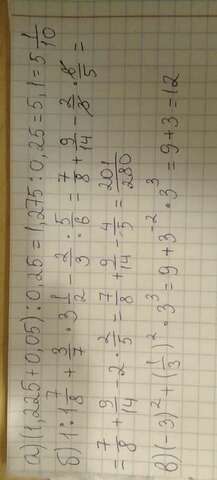 а) (1,225 + 0,05) : 0,25 = 1,275 : 0,25 = 5,1 = 5 1/10
б) 1 : 1 7/8 + 3/7 · 3 1/2 - 2/3 : 5/6 = 7/8 + 9/14 - 2/3 · 6/5 =
= 7/8 + 9/14 - 2 · 2/5 = 7/8 + 9/14 - 4/5 = 201/280
в) (-3)² + (1/3)² · 3³ = 9 + 3⁻² · 3³ = 9 + 3 = 12